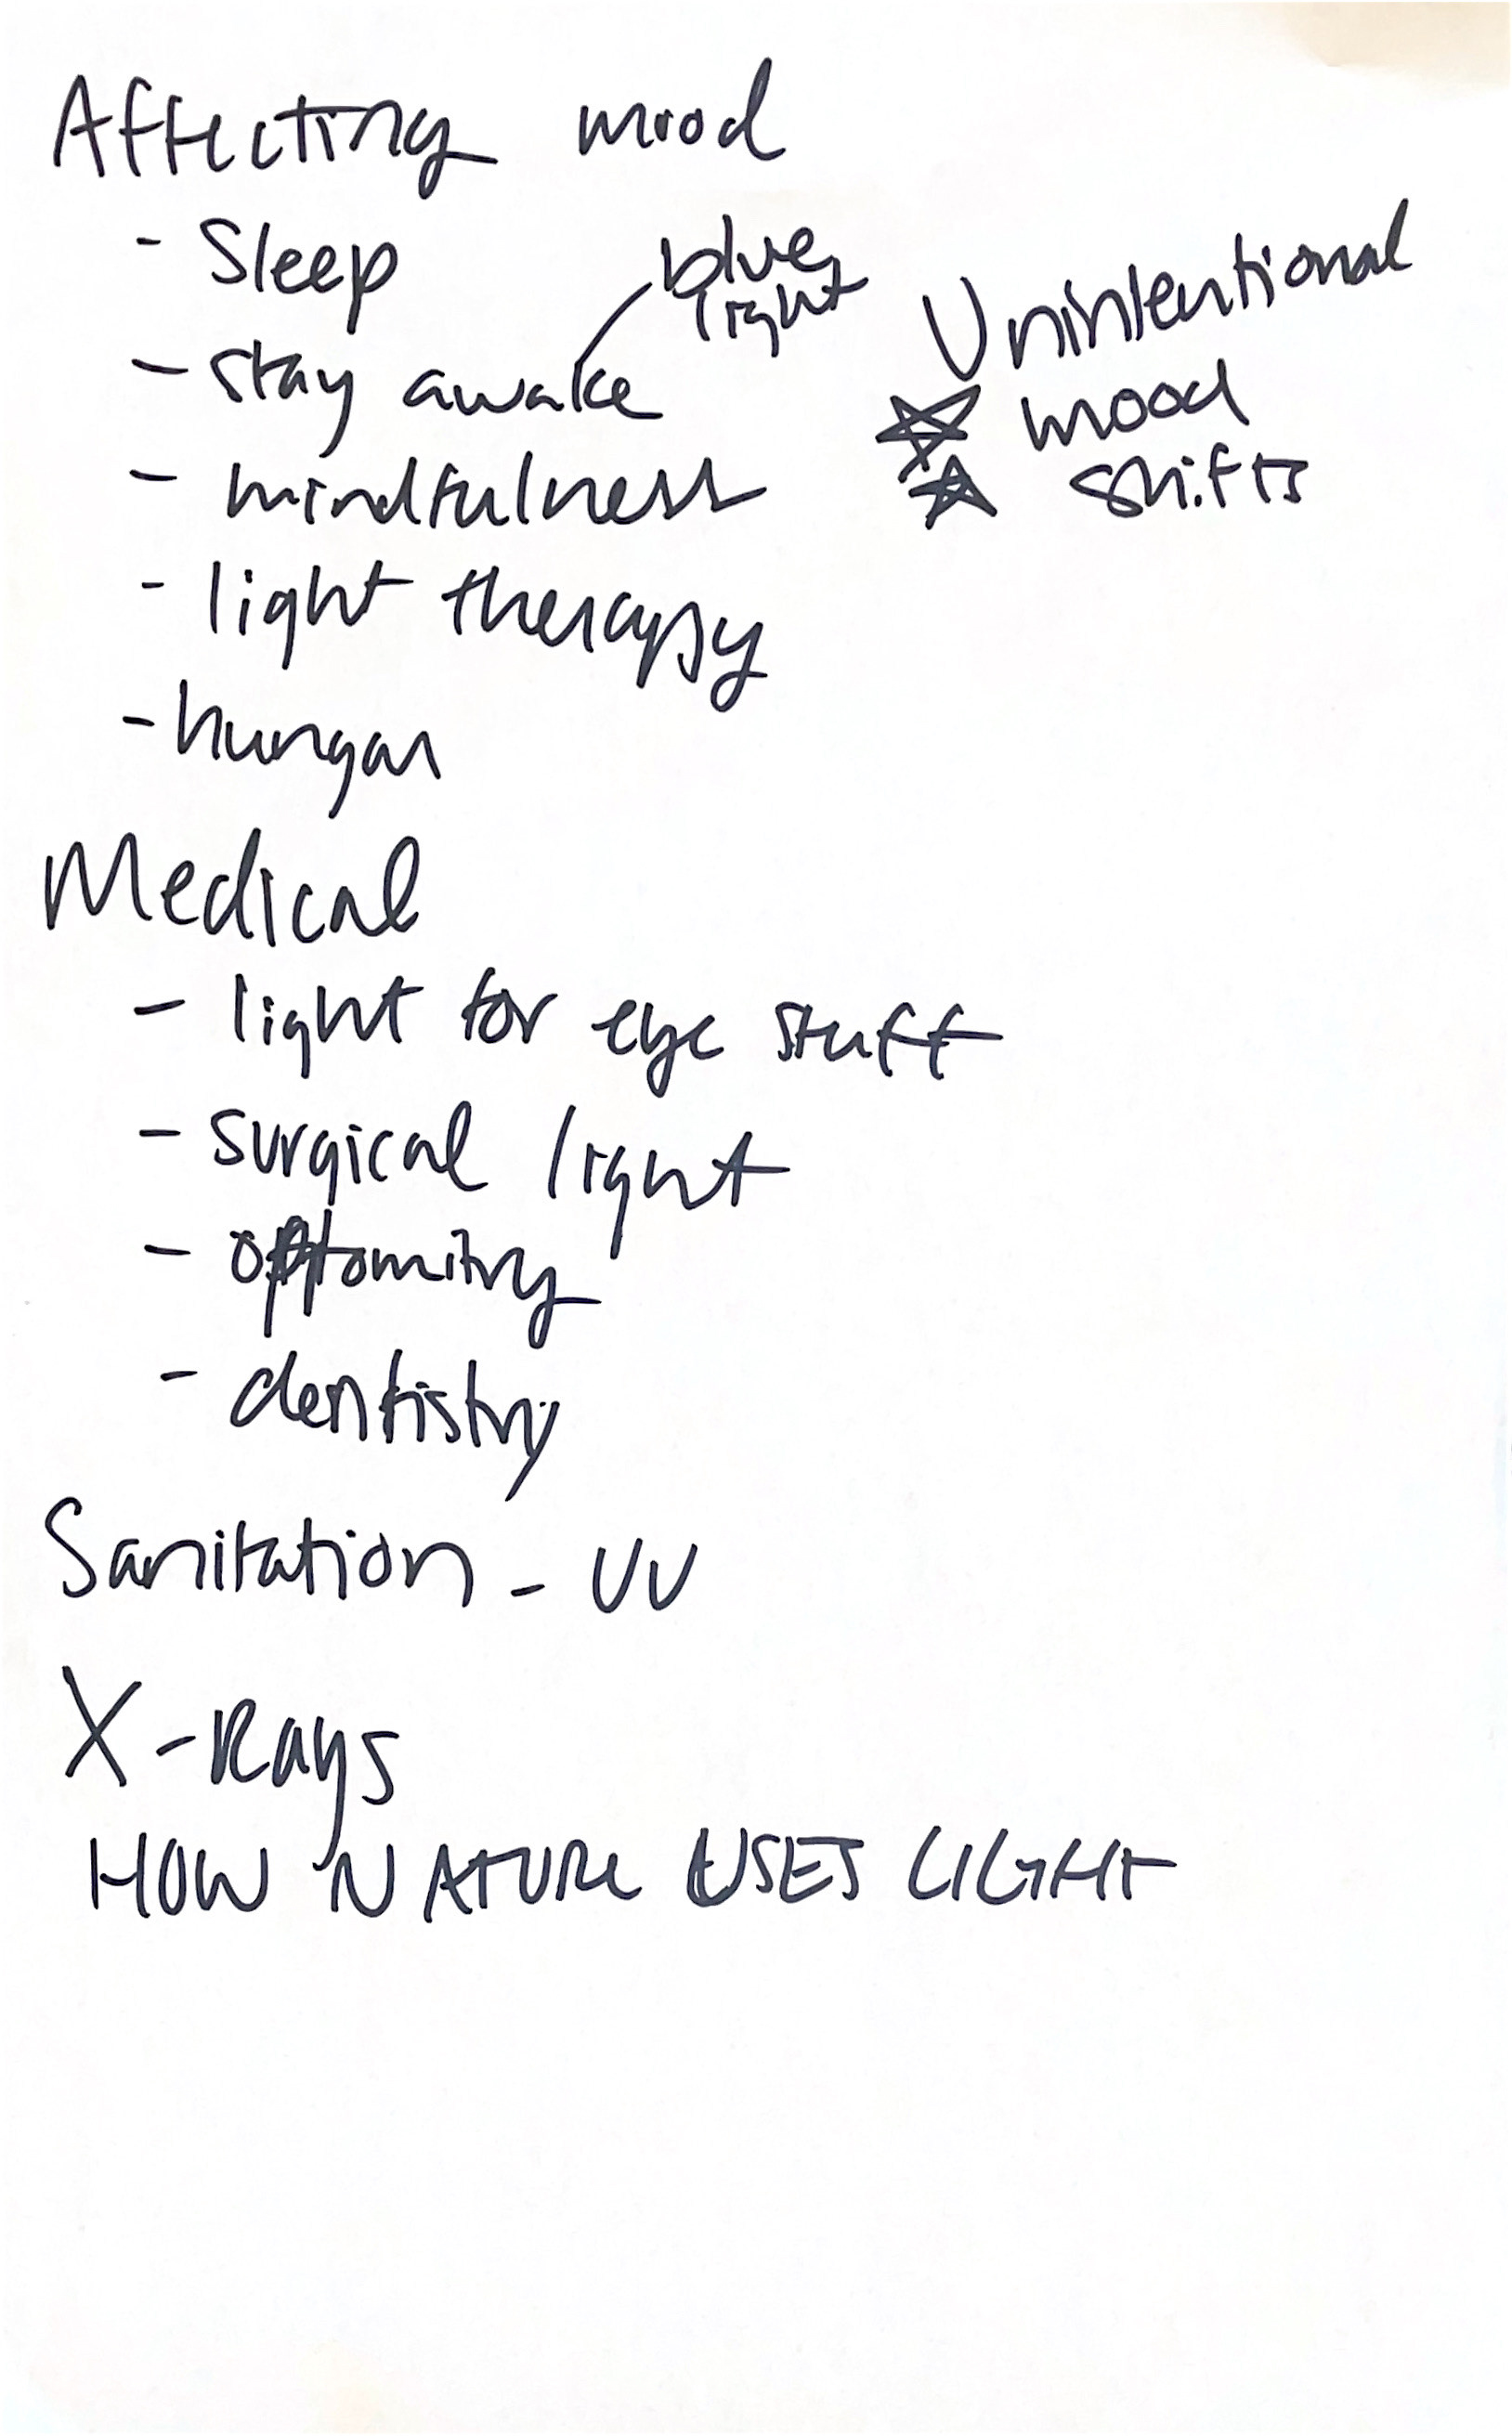 Affecting mood
- Sleep
blue
light
- stay awake
- mindfulness
- light therapy
- hungar
Unintentional
mood
shifts
Medical
- light for eye stuff
- surgical light
- optomitry
- dentistry
Sanitation - UV
X-Rays
HOW NATURE USES LIGHT